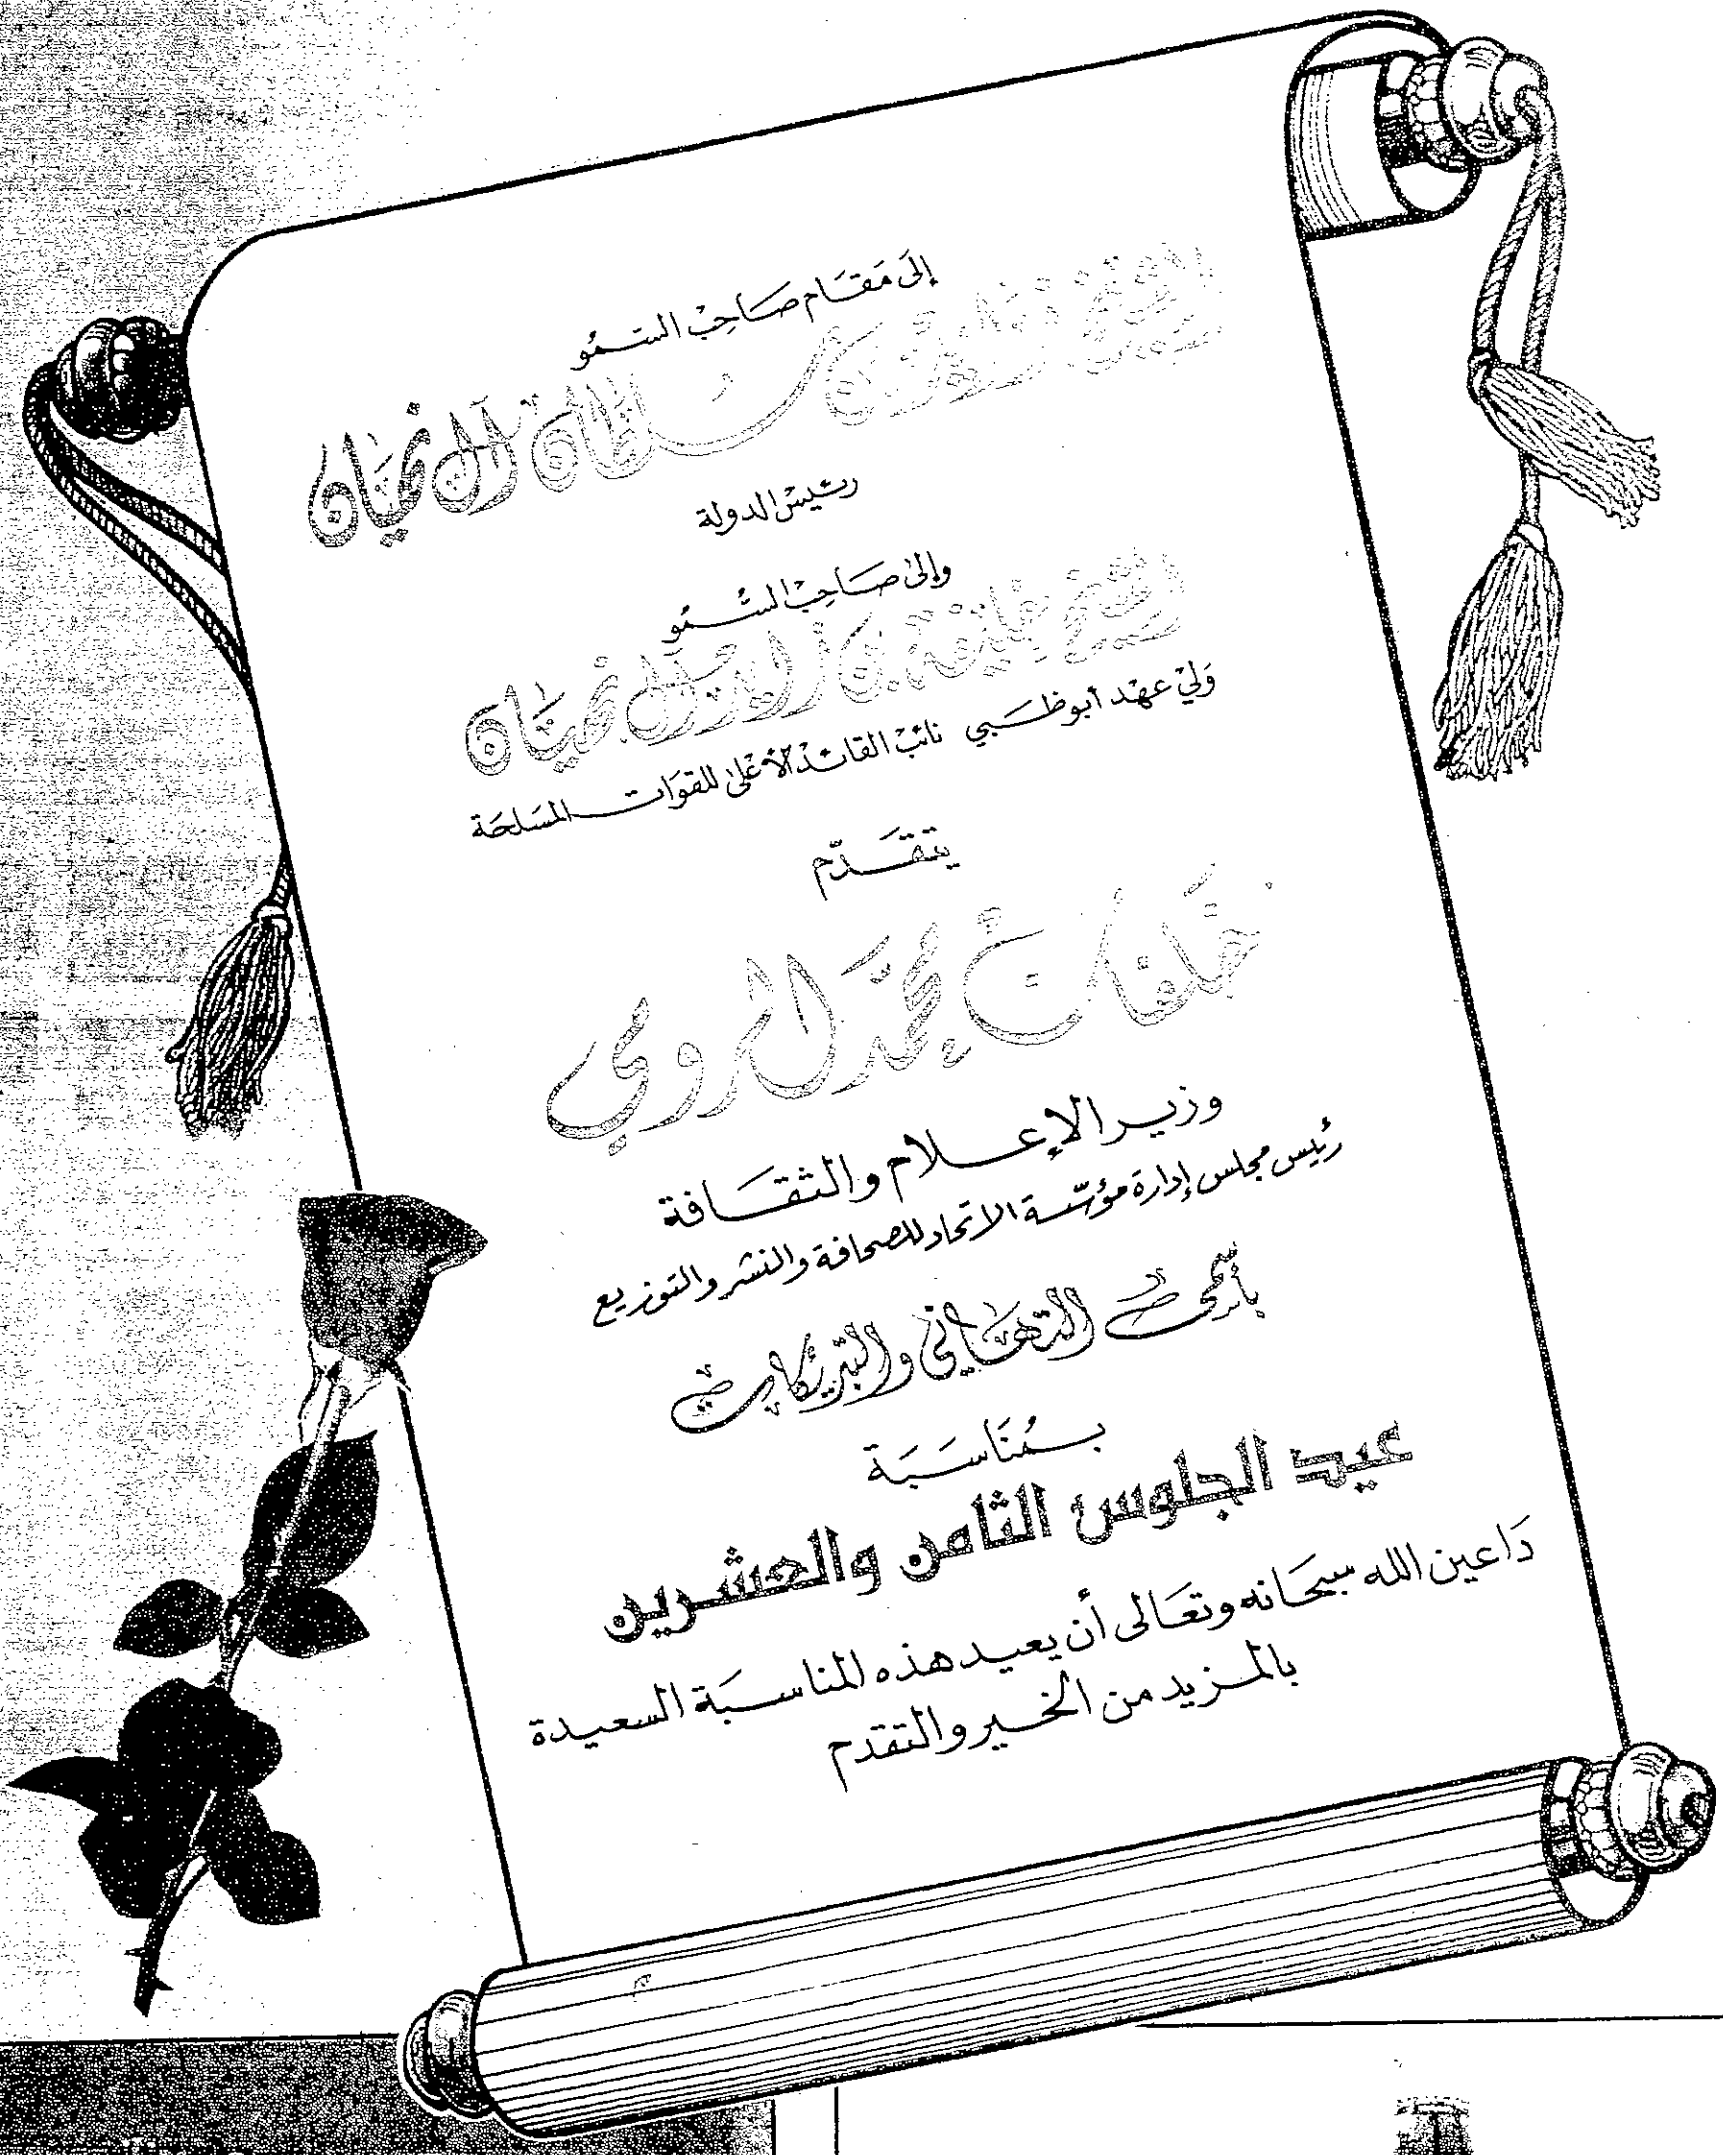 إلى مقام صاحب السمو
الشيخ زايد بن سلطان آل نهيان
رئيس الدولة
وإلى صاحب السمو
الشيخ خليفة بن زايد آل نهيان
ولي عهد أبوظبي نائب القائد الأعلى للقوات المسلحة
يتقدم
خلفان محمد الرومي
وزير الإعلام والثقافة
رئيس مجلس إدارة مؤسسة الاتحاد للصحافة والنشر والتوزيع
بأسمى التهاني والتبريكات
بمناسبة
عيد الجلوس الثامن والعشرين
داعين الله سبحانه وتعالى أن يعيد هذه المناسبة السعيدة
بالمزيد من الخير والتقدم